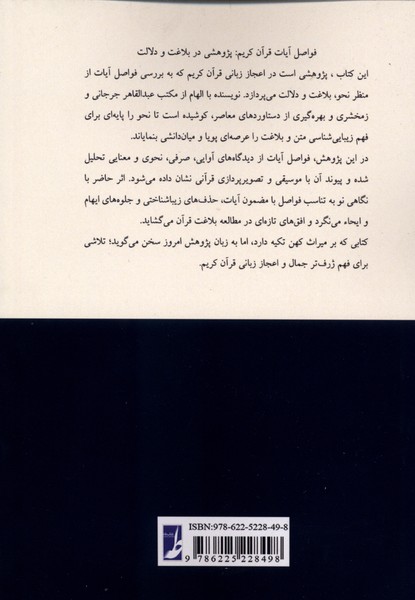 فواصل آیات قرآن کریم: پژوهشی در بلاغت و دلالت
این کتاب ، پژوهشی است در اعجاز زبانی قرآن کریم که به بررسی فواصل آیات از
منظر نحو، بلاغت و دلالت می‌پردازد. نویسنده با الهام از مکتب عبدالقاهر جرجانی و
زمخشری و بهره‌گیری از دستاوردهای معاصر، کوشیده است تا نحو را پایه‌ای برای
فهم زیبایی‌شناسی متن و بلاغت را عرصه‌ای پویا و میان‌دانشی بنمایاند.
در این پژوهش، فواصل آیات از دیدگاه‌های آوایی، صرفی، نحوی و معنایی تحلیل
شده و پیوند آن با موسیقی و تصویرپردازی قرآنی نشان داده می‌شود. اثر حاضر با
نگاهی نو به تناسب فواصل با مضمون آیات، حذف‌های زیباشناختی و جلوه‌های ایهام
و ایحاء می‌نگرد و افق‌های تازه‌ای در مطالعه بلاغت قرآن می‌گشاید.
کتابی که بر میراث کهن تکیه دارد، اما به زبان پژوهش امروز سخن می‌گوید؛ تلاشی
برای فهم ژرف‌تر جمال و اعجاز زبانی قرآن کریم.
ISBN:978-622-5228-49-8
9 786225 228498